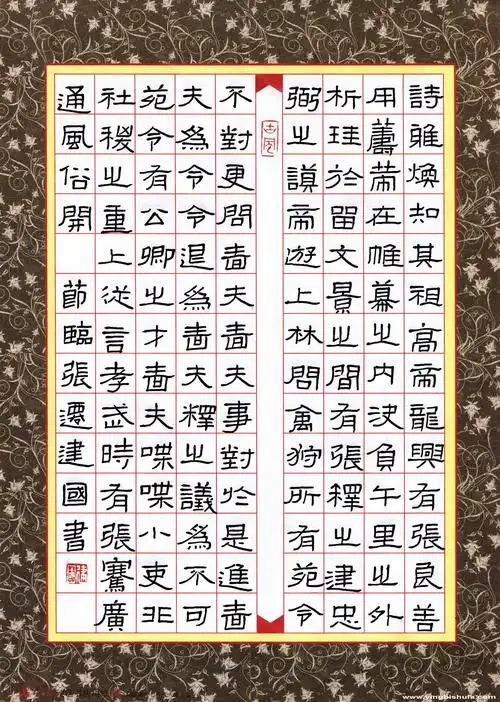 詩雖煥知其祖高帝龍興有張良善
用籌策在帷幕之內決負千里之外
析珪於留文景之間有張釋之建忠
弼之謨帝遊上林問禽狩所有苑令
古風
不對更問嗇夫嗇夫事對於是進嗇
夫為令令退為嗇夫釋之議為不可
苑令有公卿之才嗇夫喋喋小吏非
社稷之重上從言孝武時有張騫廣
通風俗開 節臨張遷建國書
www.yingbishufa.com